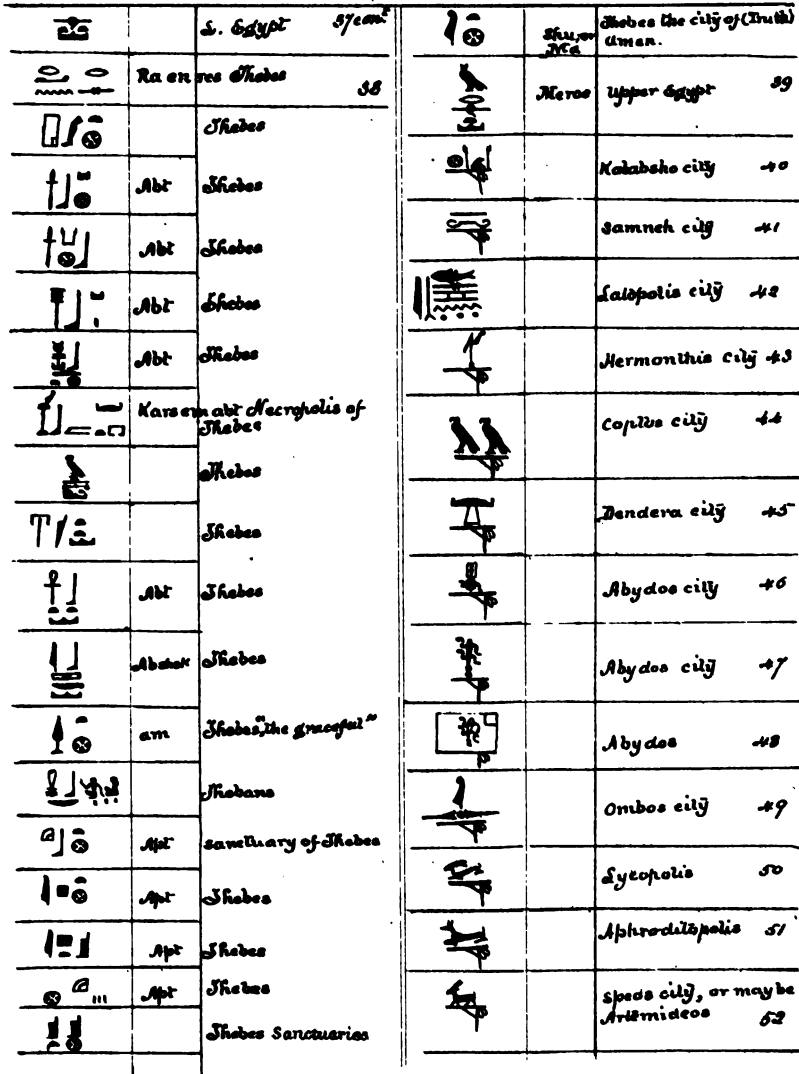 L. Egypt 37 cont
Ra en res Thebes 38
Thebes
Abt Thebes
Abt Thebes
Abt Thebes
Abt Thebes
Kars em abt Necropolis of
Thebes
Thebes
Thebes
Abt Thebes
Thebes
am Thebes, "the graceful"
Thebans
Apt sanctuary of Thebes
Apt Thebes
Apt Thebes
Apt Thebes
Thebes Sanctuaries
Shu, or Ma Thebes the city of (Truth)
Amen.
Meroe Upper Egypt 39
Kalabshe city 40
Samneh city 41
Latopolis city 42
Hermonthis city 43
Coptos city 44
Dendera city 45
Abydos city 46
Abydos city 47
Abydos 48
Ombos city 49
Lycopolis 50
Aphroditopolis 51
Speos city, or maybe
Artemideos 52